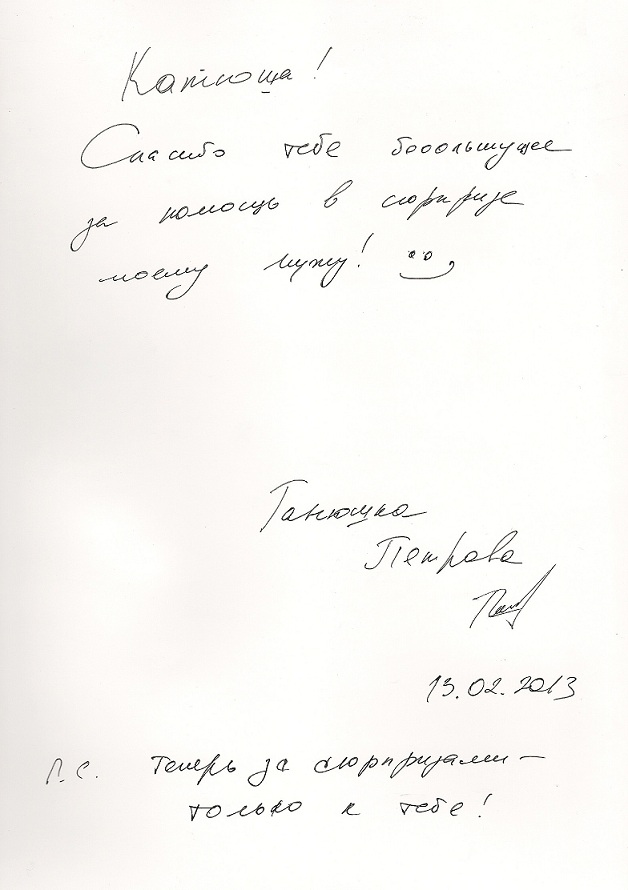 Катюша!
Спасибо тебе бооольшущее
за помощь в сюрпризе
моему мужу!
Танюшка
Петрова
13.02.2013
П.С. Теперь за сюрпризами –
только к тебе!